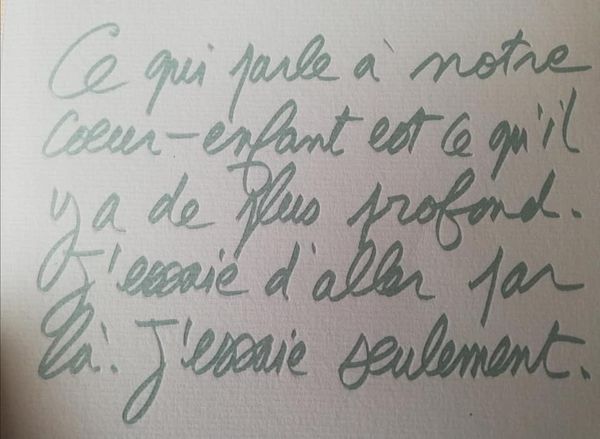 Ce qui parle à notre
cœur-enfant est ce qu'il
y a de plus profond.
J'essaie d'aller par
là. J'essaie seulement.